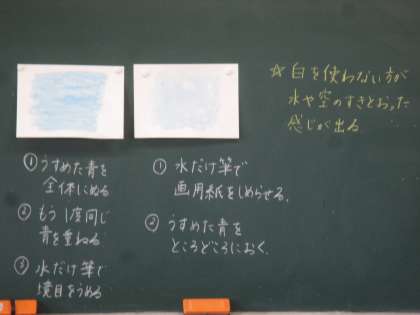 ①うすめた青を
全体にぬる
②もう1度同じ
青を重ねる
③水だけ筆で
境目をうめる
①水だけ筆で
画用紙をしめらせる。
②うすめた青を
ところどころにおく。
☆白を使わない方が
水や空のすきとおった
感じが出る